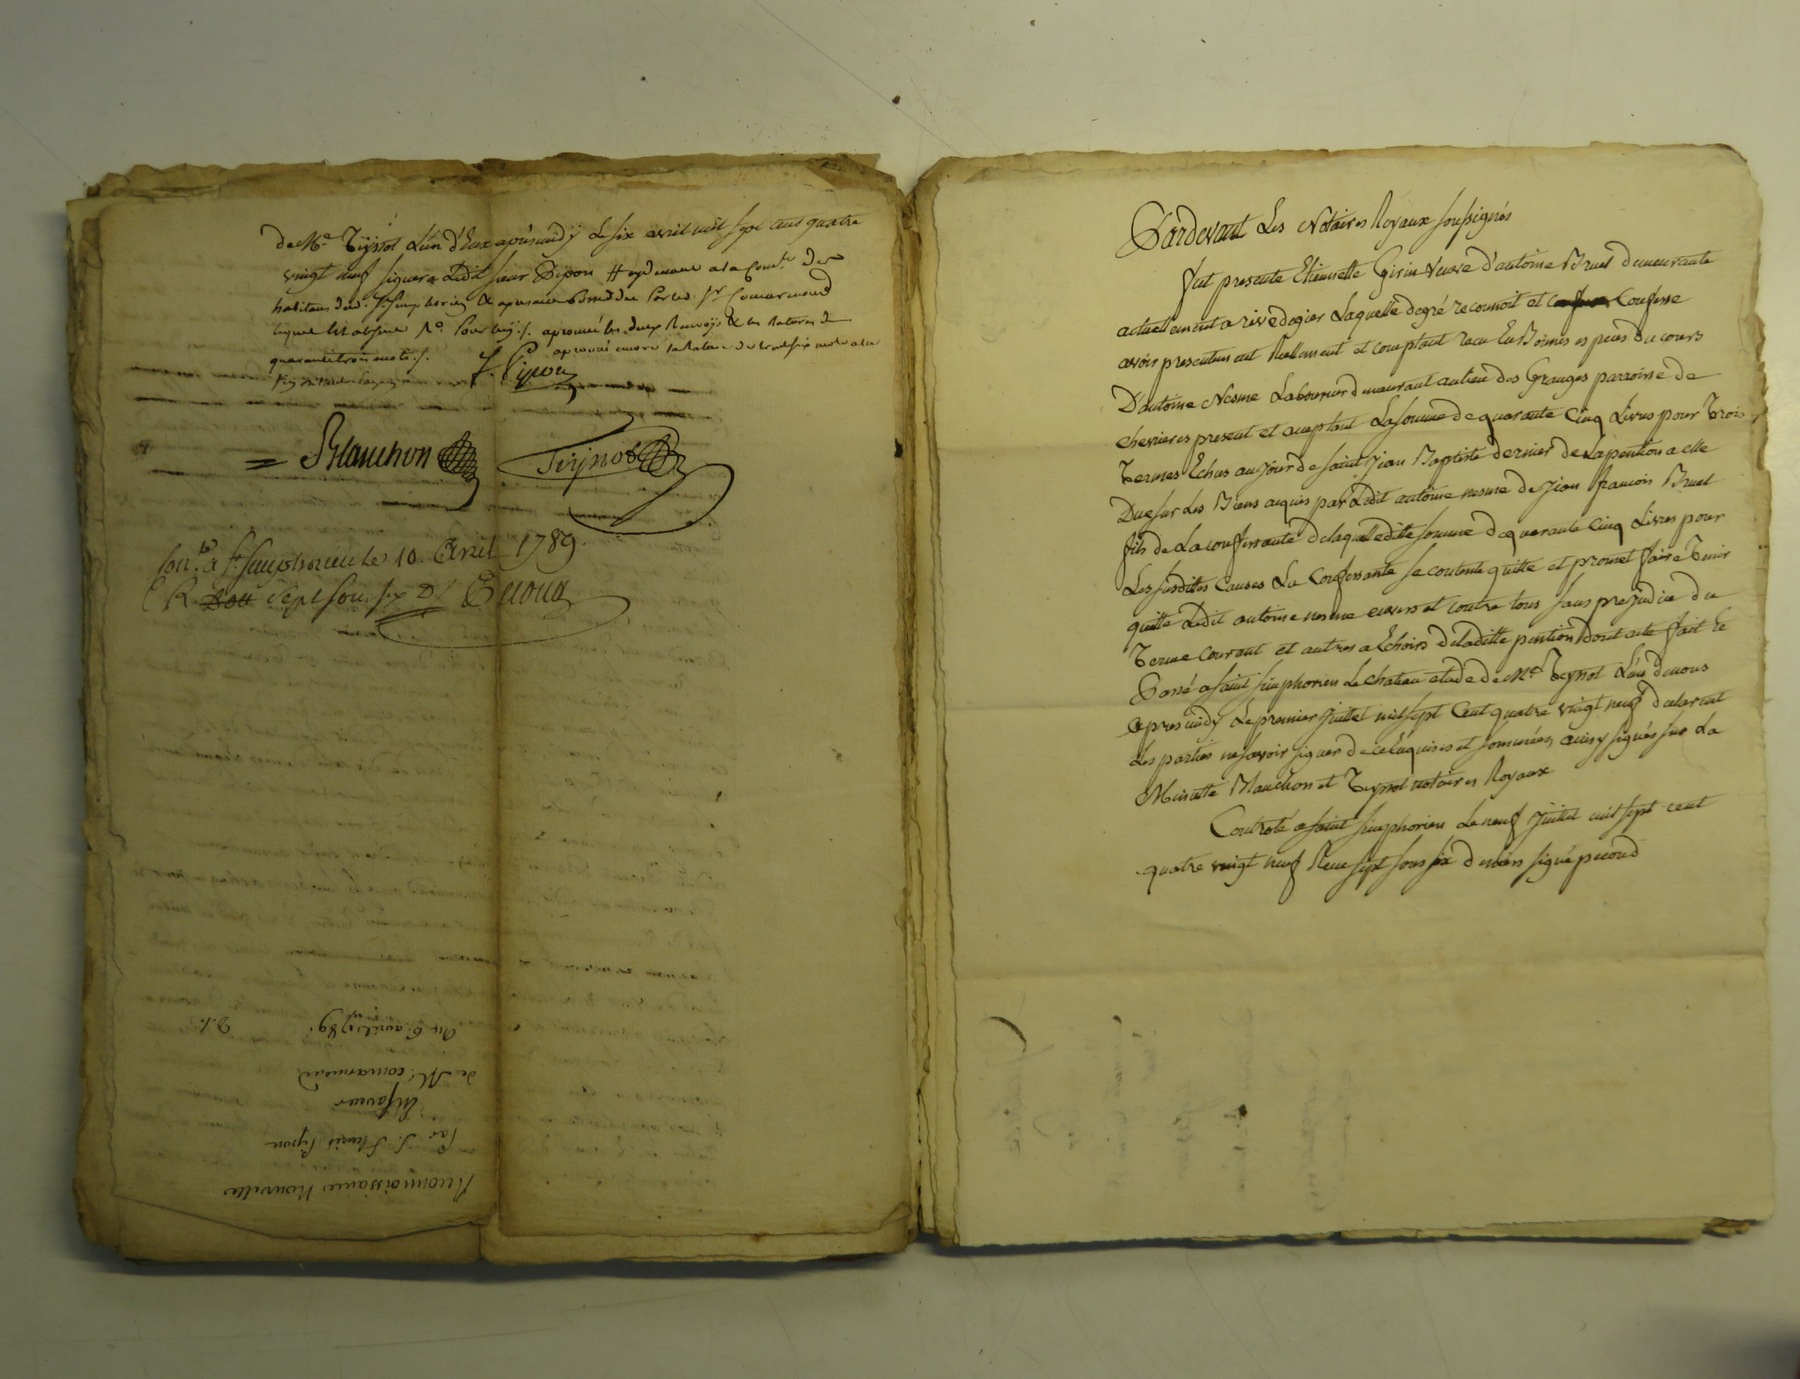 de Me. Teyssot L'un d'Eux après midÿ Le six avril mil sept cent quatre
vingt neuf signera Ledit sieur Pipon
habitans dud. St. Simphorien
aprouvé les deux Renvoÿs & les Ratures de
quarante trois mots ./.
aprouvé encore la Rature de
f. Pipon
Blanchon Teyssot
Con.té à St. Simphorien le 10. Avril 1789
R. sept sous six d.
Reconnoissance Nouvelle
Par S. Pipon
En faveur
de Mr. comarmond
Du 6. avril 1789.
Pardevant Les Notaires Royaux soussignés
fut presente Etiennette Girin Veuve d'antoine Bruel demeurante
actuellement a rivedegier Laquelle de gré reconnoit et Confesse
avoir presentement Réellement et comptant recu En Bonnes especes du cours
D'antoine Nesme Laboureur demeurant au lieu des Granges parroisse de
chevrieres present et aceptant La somme de quarante Cinq Livres pour Trois
Termes Echus au jour de saint Jean Baptiste dernier de La pention a elle
Due sur Les Biens acquis par Ledit antoine nesme de jean francois Bruel
fils de La confessante de laquelle ditte somme de quarante Cinq Livres pour
Les susdittes Causes La Confessante se contente quitte et promet faire Tenir
quitte Ledit antoine nesme envers et contre tous sans prejudice du
Terme Courant et autres a Echoirs de laditte pention dont acte fait Et
Passé a saint simphorien Le chateau etude de Me. Teyssot L'un de nous
apres midy Le premier juillet mil sept Cent quatre vingt neuf declarant
Les parties ne savoir signer de ce Enquises et sommées, ainsy signés sur La
Minutte Blanchon et Teyssot notaires Royaux
Controlé a saint simphorien Le neuf juillet mil sept cent
quatre vingt neuf Recu sept sous six deniers signé